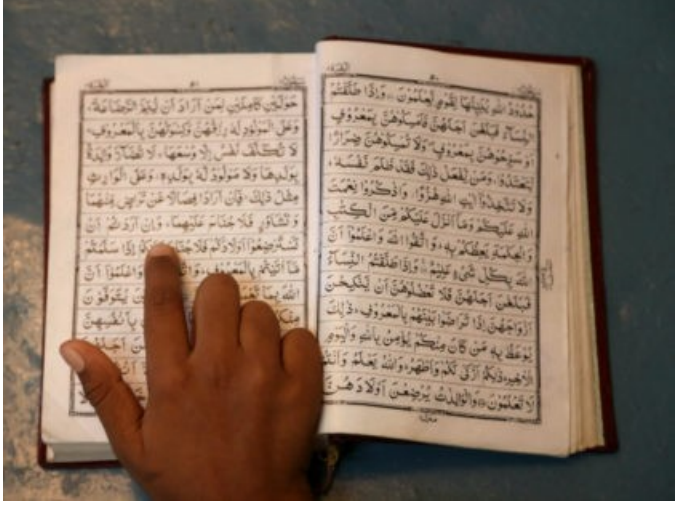 حُدُوْدُ اللّٰهِ يُبَيِّنُهَا لِقَوْمٍ يَّعْلَمُوْنَ ۝ وَاِذَا طَلَّقْتُمُ
النِّسَآءَ فَبَلَغْنَ اَجَلَهُنَّ فَاَمْسِكُوْهُنَّ بِمَعْرُوْفٍ
اَوْ سَرِّحُوْهُنَّ بِمَعْرُوْفٍ وَلَا تُمْسِكُوْهُنَّ ضِرَارًا
لِّتَعْتَدُوْا وَمَنْ يَّفْعَلْ ذٰلِكَ فَقَدْ ظَلَمَ نَفْسَهٗ
وَلَا تَتَّخِذُوْٓا اٰيٰتِ اللّٰهِ هُزُوًا وَاذْكُرُوْا نِعْمَتَ
اللّٰهِ عَلَيْكُمْ وَمَآ اَنْزَلَ عَلَيْكُمْ مِّنَ الْكِتٰبِ
وَالْحِكْمَةِ يَعِظُكُمْ بِهٖ وَاتَّقُوا اللّٰهَ وَاعْلَمُوْٓا اَنَّ
اللّٰهَ بِكُلِّ شَىْءٍ عَلِيْمٌ ۝ وَاِذَا طَلَّقْتُمُ النِّسَآءَ
فَبَلَغْنَ اَجَلَهُنَّ فَلَا تَعْضُلُوْهُنَّ اَنْ يَّنْكِحْنَ
اَزْوَاجَهُنَّ اِذَا تَرَاضَوْا بَيْنَهُمْ بِالْمَعْرُوْفِ ذٰلِكَ
يُوْعَظُ بِهٖ مَنْ كَانَ مِنْكُمْ يُؤْمِنُ بِاللّٰهِ وَالْيَوْمِ
الْاٰخِرِ ذٰلِكُمْ اَزْكٰى لَكُمْ وَاَطْهَرُ وَاللّٰهُ يَعْلَمُ وَاَنْتُمْ
لَا تَعْلَمُوْنَ ۝ وَالْوَالِدٰتُ يُرْضِعْنَ اَوْلَادَهُنَّ
حَوْلَيْنِ كَامِلَيْنِ لِمَنْ اَرَادَ اَنْ يُّتِمَّ الرَّضَاعَةَ
وَعَلَى الْمَوْلُوْدِ لَهٗ رِزْقُهُنَّ وَكِسْوَتُهُنَّ بِالْمَعْرُوْفِ
لَا تُكَلَّفُ نَفْسٌ اِلَّا وُسْعَهَا لَا تُضَآرَّ وَالِدَةٌ
بِوَلَدِهَا وَلَا مَوْلُوْدٌ لَّهٗ بِوَلَدِهٖ وَعَلَى الْوَارِثِ
مِثْلُ ذٰلِكَ فَاِنْ اَرَادَا فِصَالًا عَنْ تَرَاضٍ مِّنْهُمَا
وَتَشَاوُرٍ فَلَا جُنَاحَ عَلَيْهِمَا وَاِنْ اَرَدْتُّمْ اَنْ
تَسْتَرْضِعُوْٓا اَوْلَادَكُمْ فَلَا جُنَاحَ اِذَا سَلَّمْتُمْ
مَّآ اٰتَيْتُمْ بِالْمَعْرُوْفِ وَاعْلَمُوْٓا اَنَّ
اللّٰهَ بِمَا يُتَوَفَّوْنَ
بِاَنْفُسِهِنَّ